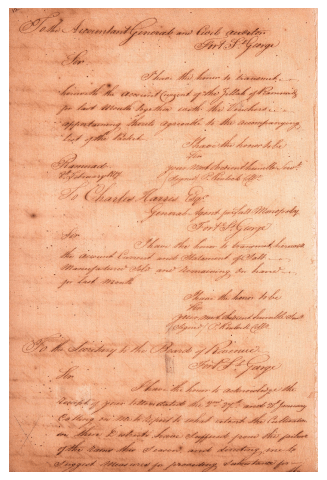 To the Accountant General and Civil Auditor
Fort St. George
Sir
I have the honor to transmit
herewith the account Current of the Zillah of
for last Month Together with the Vouchers
appertaining thereto agreeable to the accompanying
List of the Batch.
I have the honor to be
Sir
your most obedient humble Servt
February
To Charles Harris Esqr
General Agent for Salt Monopoly
Fort St. George
Sir
I have the honor to transmit herewith
the account Current and Statement of Salt
Manufactured Sold and remaining on hand
for last Month
I have the honor to be
Sir
your most obedient humble Servt
To the Secretary to the Board of Revenue
Fort St. George
Sir
I have the honor to acknowledge the
receipt of your letters dated the 2nd 27th and 31 January
Calling on me to report to what extent the Cultivation
in these Districts have suffered from the failure
of the rains this Season and directing me to
Suggest Measures for providing Subsistence for